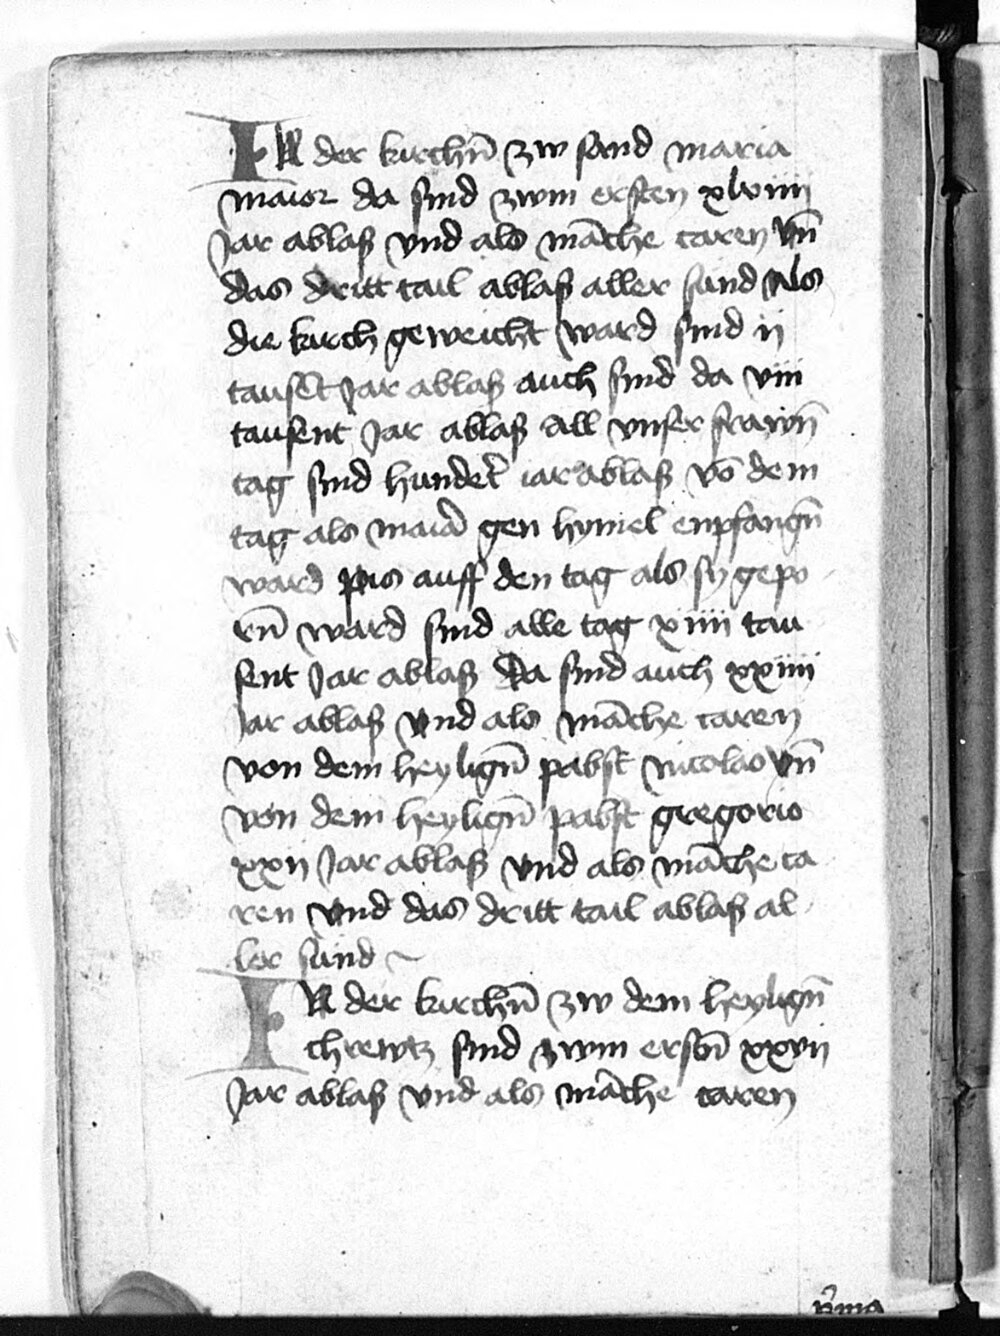 IN der kirchn̄ zw sand maria
maior da sind zwm ersten xlviiii
Jar ablaß vnd als māche caren vn̄
das dritt tail ablaß aller sünd Als
die kirch geweicht ward sind ii
tausēt Jar ablaß auch sind da viii
tausent Jar ablaß All vnser frawn̄
tag sind hundert iar ablaß vō dem
tag als maria gen hymel enpfangn̄
ward pis auff den tag als sy gepo
rn̄ ward sind alle tag xiiii tau
sent Jar ablaß Da sind auch xxiiii
Jar ablaß vnd als māche caren
von dem heylign̄ pabst nicolao vn̄
von dem heylign̄ pabst gregorio
xxii Jar ablaß vnd als māche ca
ren vnd das dritt tail ablaß al
ler sünd
IN der kirchn̄ zw dem heylign̄
chrewtz sind zwm erstn̄ xxvii
Jar ablaß vnd als māche caren